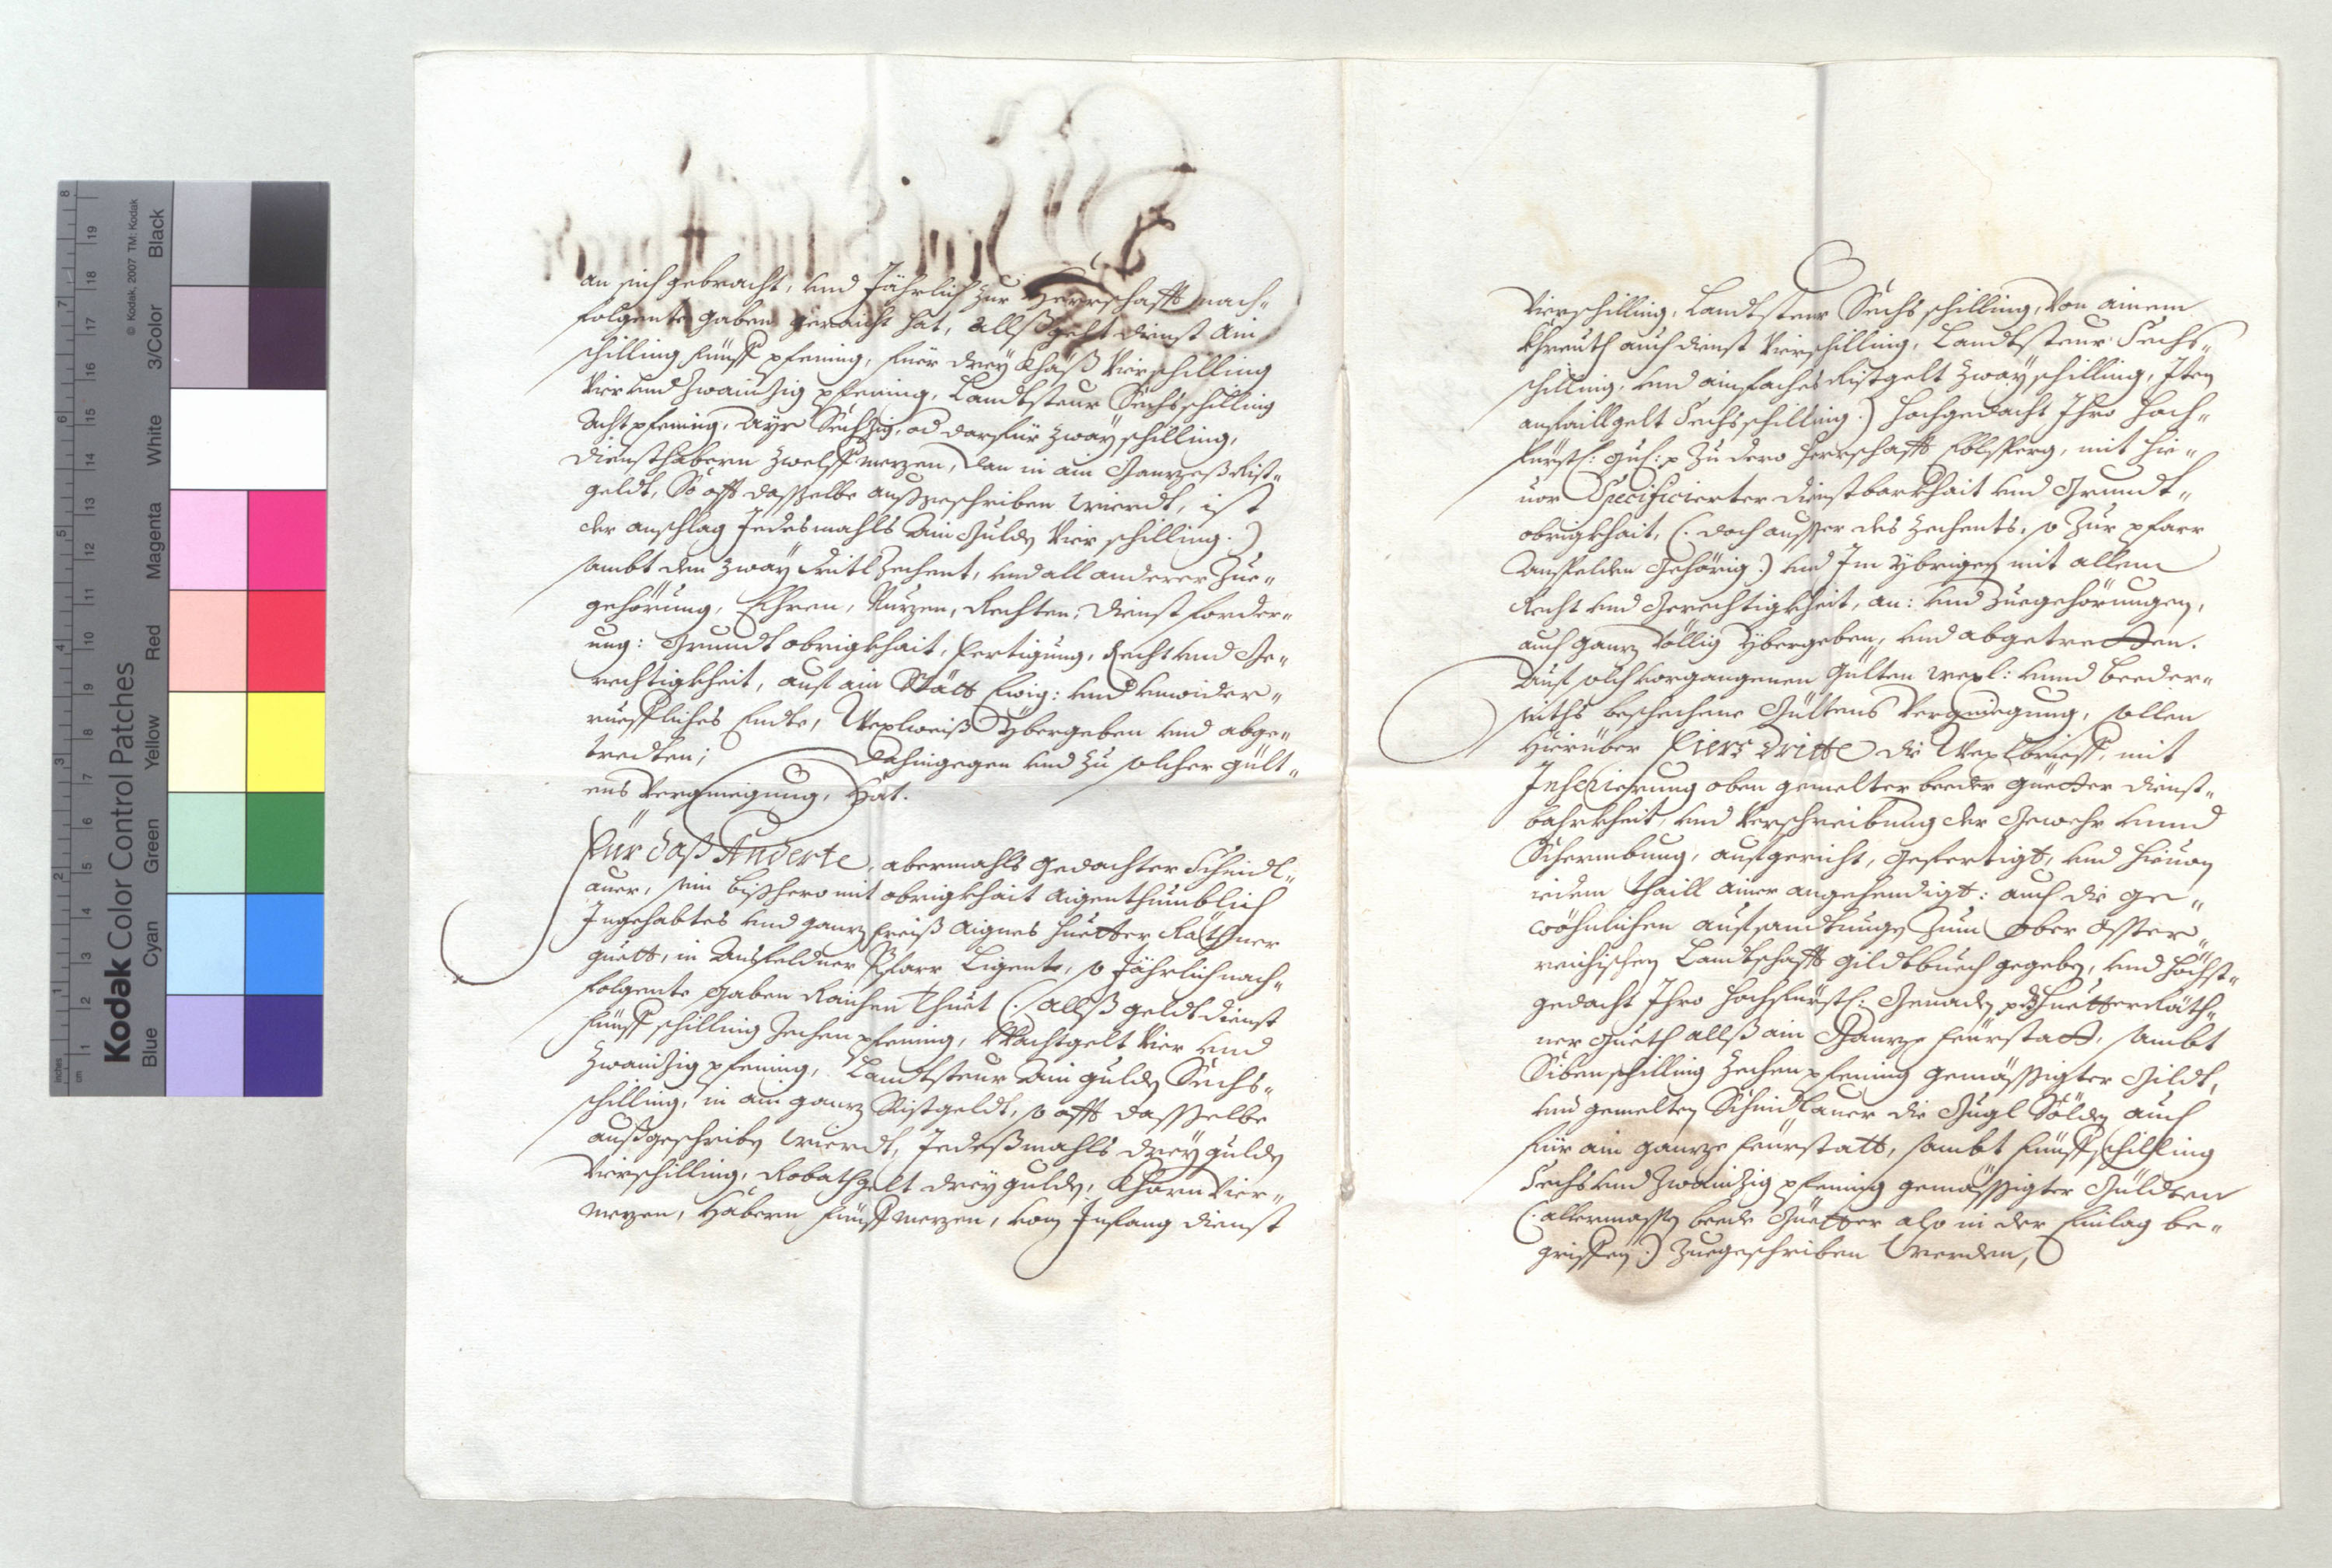 an sich gebracht, und Jährlich zur Herrschafft nach-
folgente gaben geraicht hat, Allß geltt dienst Ain
schilling fünff pfening, fuer drey Khäß Vier schilling
Vier und zwainzig pfening, Landtsteur Sechs schilling
Acht pfening, Ayr Sechzig, od darfür zway schilling,
diensthabern zwelff mezen, dan in ain Ganzeß Rist-
geldt, So offt dasselbe außgeschriben wierdt, ist
der anschlag Jedesmahls Ain Guldn Vier schilling.)
sambt dem zway drittl zechent, und all anderer Zue-
gehörung, Ehren, Nuzen, Rechten, dienst forder-
ung: Grundt obrigkhait, fertigung, Recht und Ge-
rechtigkheit, auf ain Stätt Ewig: und unwider-
rueffliches Endte, Wexlweiß Ybergeben und abge-
tredten; dahingegen und zu solcher gült-
ens Vergnüegung, Hat.
Für daß Anderte, abermahls gedachter Schmidt-
auer, sein bißhero mit obrigkhait aigenthumblich
Ingehabtes und ganz freiß Aignes Huetter Räthner
guett, in Ansfeldner Pfarr Ligent, so Jährlich nach-
folgente Gaben Raichen Thuet (: Allß geldt dienst
fünff schilling zechen pfening, Wachtgelt Vier und
zwainzig pfening, Landtsteur Ain guldn Sechs-
schilling, in ain ganz Ristgeldt, so offt dasselbe
außgeschribn wierdt, Jedeßmahls drey guldn
Vier schilling, Robathgelt drey guldn, Khorn Vier-
mezen, Habern fünff mezen, vom Infang dienst
Vier schilling, Landtsteur Sechs schilling, Von ainem
Khreuth auch dienst Vier schilling, Landtsteur Sechs-
schilling, und ainfaches Ristgelt zway schilling, Iten
anfaillgelt Sechs schilling.) hochgedacht Ihro Hoch-
fürstl: Gnl: p zu dero Herrschafft Eblsperg, mit hie-
vor Specificierter dienstbarkhait und Grundt-
obrigkhait, (: doch ausser des zechents, so zur pfarr
Ansfelden gehörig:) und Im Ybrigen mit allem
Recht und Gerechtigkheit, an: und zuegehörungen,
auch ganz völlig Ybergeben, und abgetretten.
Auf solch vorgangenen Gülten wexl: unnd beeder-
seiths beschechene Gültens Vergnüegung, sollen
Hierüber Fiers dritte die Wexlbrieff, mit
Inserierung oben gemelter beeder güetter dienst-
bahrkheit, und Verschreibung der Gewehr unnd
Schermbung, aufgericht, gefertigt, und hievon
iedem thaill ainer angehendigt: auch die ge-
wöhnlichen aufsandtungn zum Ober Össter-
reichischen Landtschafft gildtbuech gegebn, und höchst-
gedacht Ihro Hochfürstl: Genadn p dß Huetter Räth-
ner Gueth allß ain Ganze feürstatt, sambt
Siben schilling zechen pfening gemässigter Gildt,
und gemelten Schmidtauer die Gugl Söldn auch
für ain ganze feürstatt, sambt fünff schilling
Sechs und zwainzig pfening gemässigter Güldten
(: allermassen beede Güetter also in der Einlag be-
griffen:) zuegeschriben werden,
Kodak Color Control Patches
© Kodak, 2007 TM: Kodak
Blue Cyan Green Yellow Red Magenta White 3/Color Black
inches 1 2 3 4 5 6 7 8
cm 1 2 3 4 5 6 7 8 9 10 11 12 13 14 15 16 17 18 19